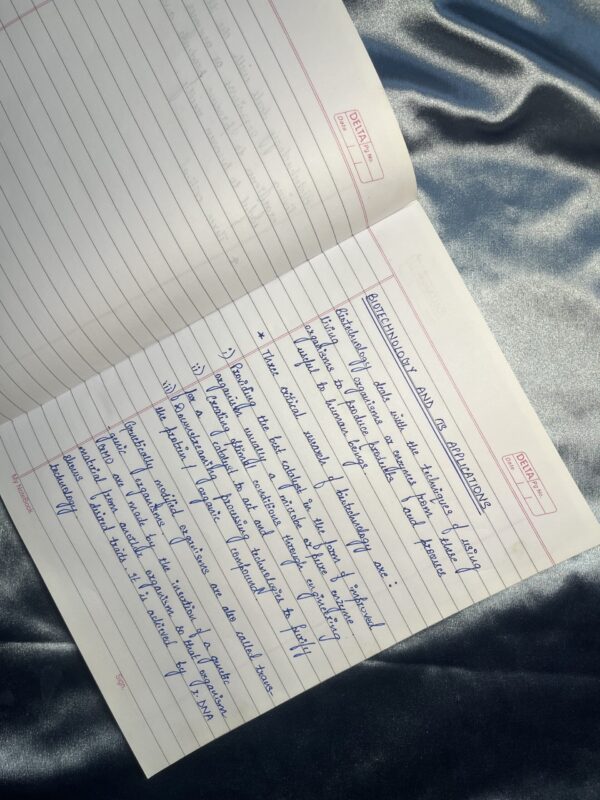 DELTA Pg No.
Date
DELTA Pg No.
Date
BIOTECHNOLOGY AND ITS APPLICATIONS
Biotechnology deals with the techniques of using
living organisms or enzymes from these
organisms to produce products and processes
useful to human beings.
* Three critical research of biotechnology are :
i) Providing the best catalyst in the form of improved
organism usually a microbe or pure enzyme.
ii) Creating optimal conditions through engineering
for a catalyst to act and
iii) Downstreaming processing technologies to purify
the protein / organic compound
Genetically modified organisms are also called trans-
genic organisms
GMO are made by the insertion of a genetic
material from another organism so that organism
shows desired traits. It is achieved by r-DNA
technology
My NoteBook
Sign.